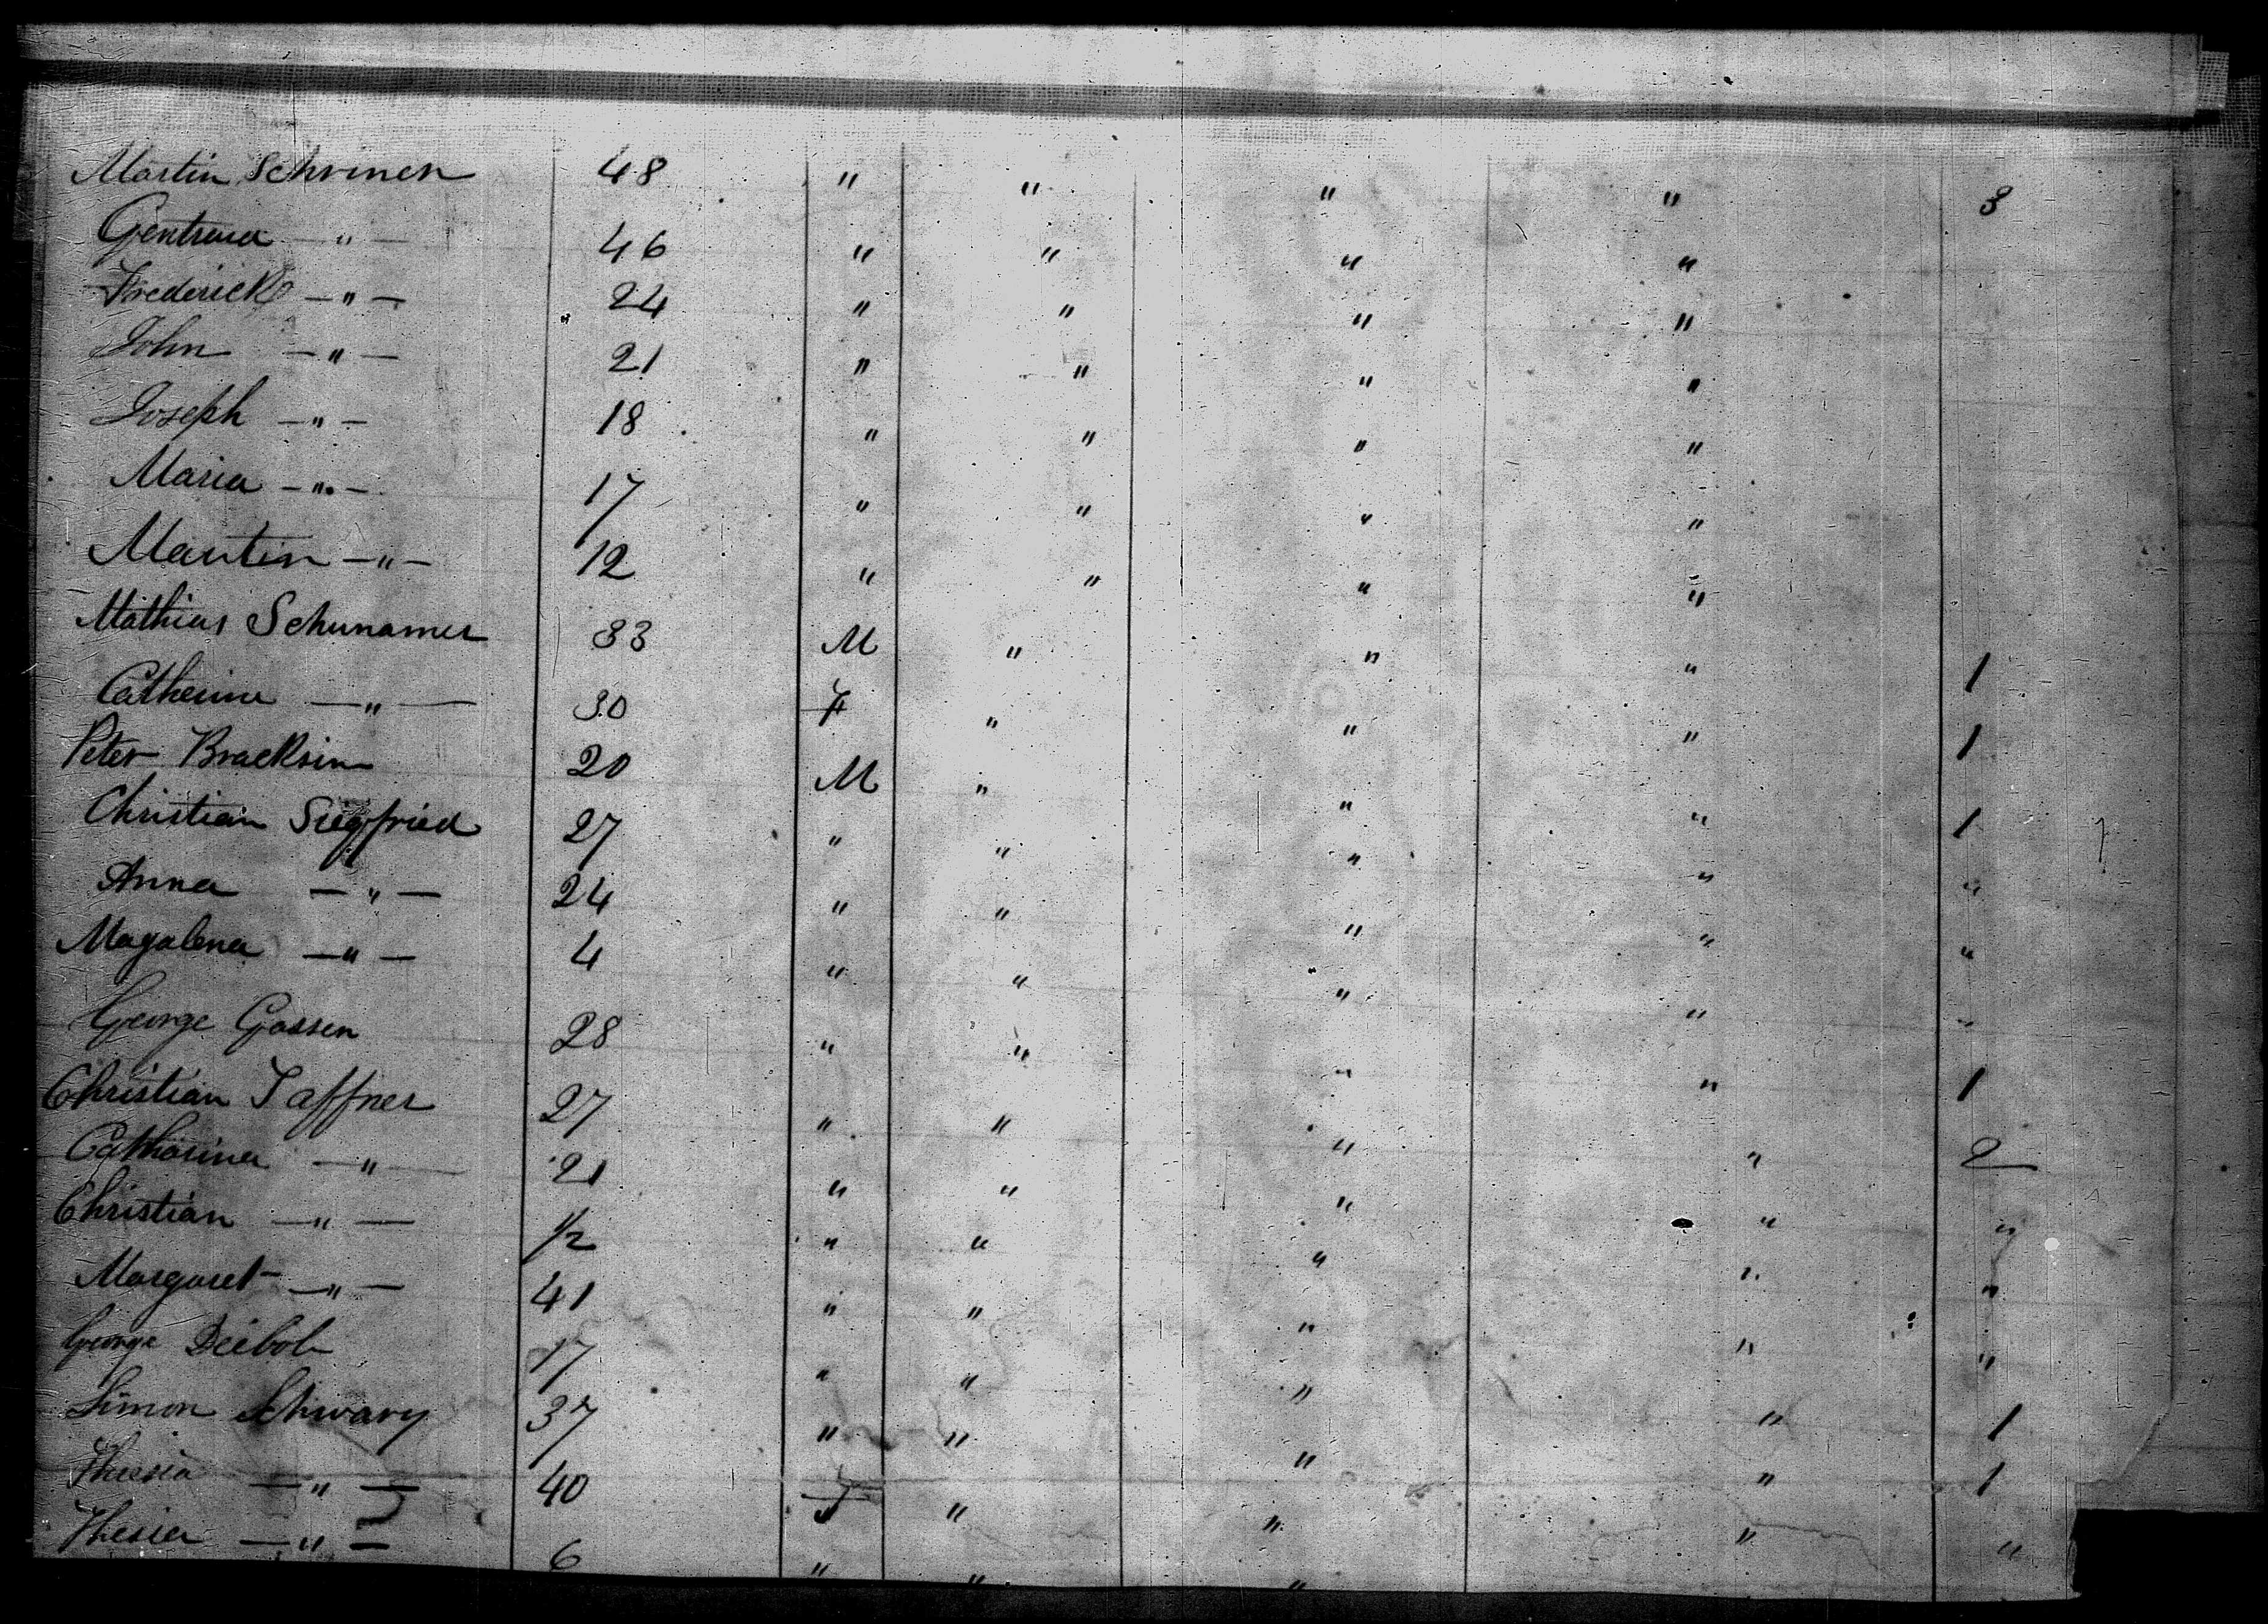 Martin Schrinen 48 " " " " 3
Gentraud — " — 46 " " " "
Frederick — " — 24 " " " "
John — " — 21 " " " "
Joseph — " — 18 " " " "
Maria — " — 17 " " " "
Martin — " — 12 " " " "
Mathias Schunamer 33 M " " " 1
Catherine — " — 30 F " " " 1
Peter Bracksin 20 M " " " 1
Christian Siegfried 27 " " " " "
Anna — " — 24 " " " " "
Magalena — " — 4 " " " " "
George Gassen 28 " " " " 1
Christian Taffner 27 " " " " 2
Catharina — " — 21 " " " " "
Christian — " — 1/2 " " " " "
Margaret — " — 41 " " " " "
George Deibol 17 " " " " 1
Simon Schwary 37 " " " " 1
Thresia — " — 40 F " " " "
Thesia — " — 6 " " "